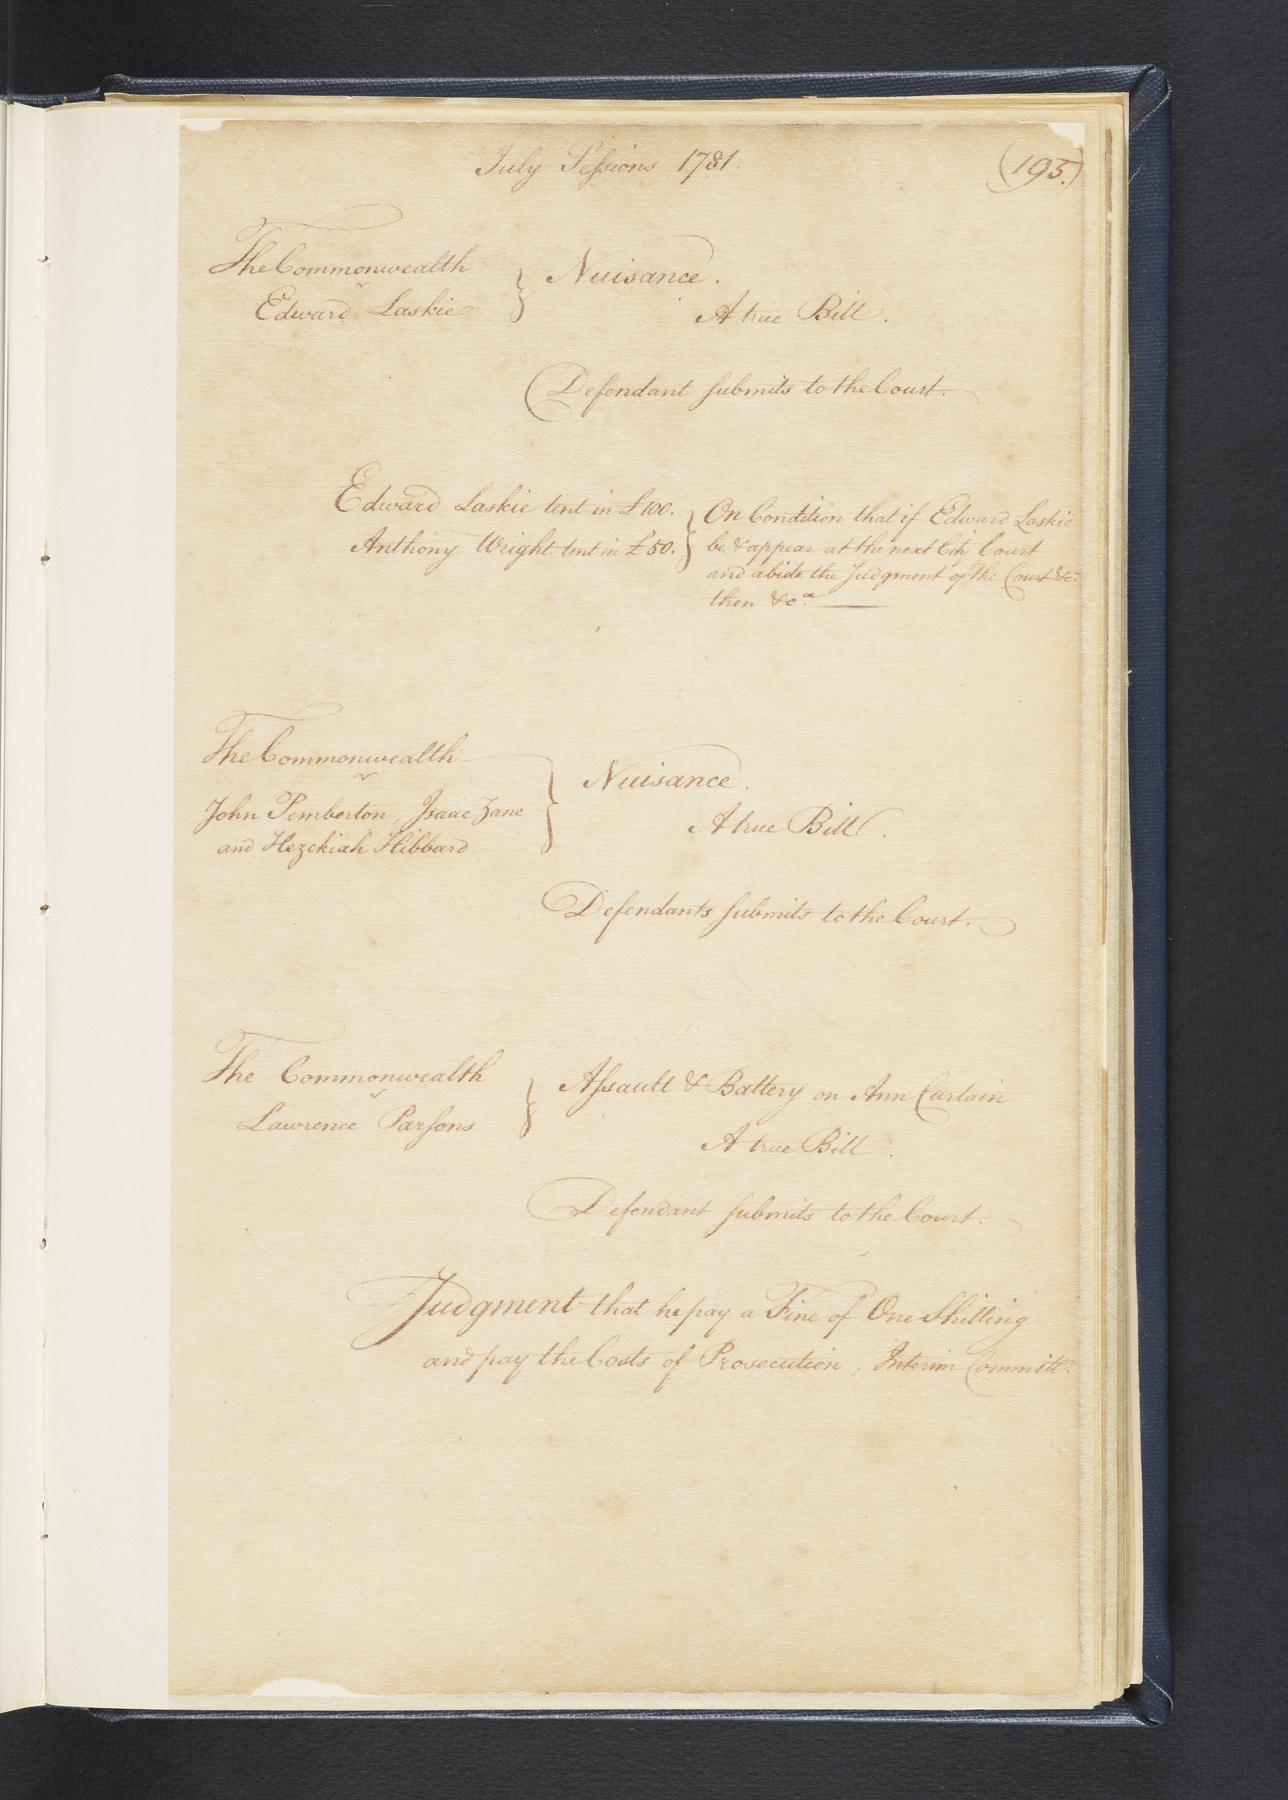 July Sessions 1781.
(195.)
The Commonwealth
v
Edward Laskie
Nuisance.
A true Bill.
Defendant submits to the Court.
Edward Laskie tent in £100.
Anthony Wright tent in £50.
On Condition that if Edward Laskie
be & appear at the next City Court
and abide the Judgment of the Court &c.
then &cª.
The Commonwealth
v
John Pemberton, Isaac Zane
and Hezekiah Hibbard
Nuisance.
A true Bill.
Defendants submits to the Court.
The Commonwealth
v
Lawrence Parsons
Assault & Battery on Ann Curtain
A true Bill.
Defendant submits to the Court.
Judgment that he pay a Fine of One Shilling
and pay the Costs of Prosecution, Interim Committr.